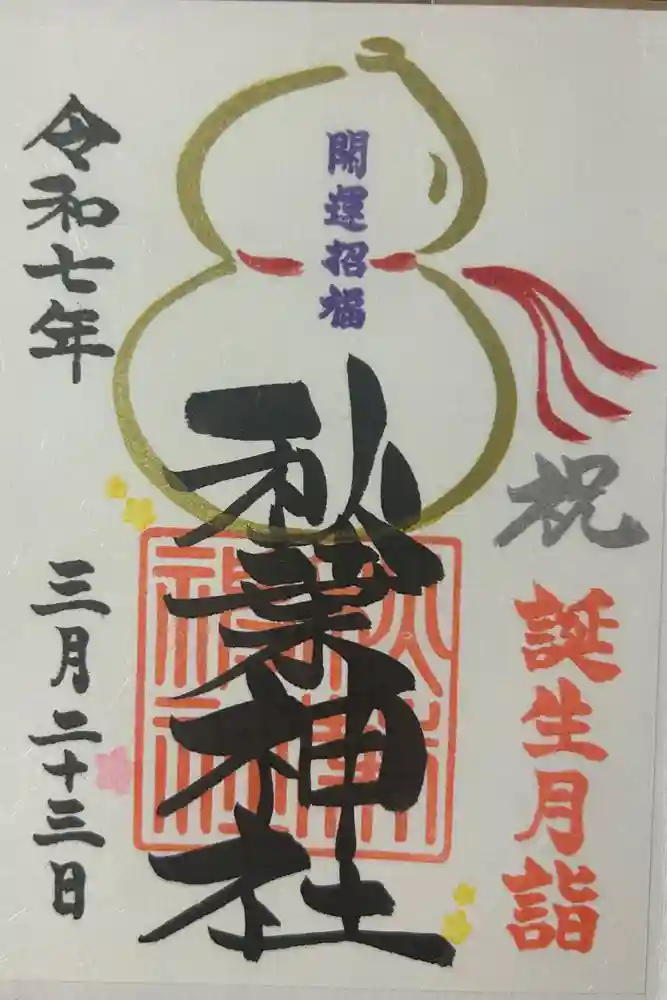 祝
誕生月詣
開運招福
秋葉神社
秋葉
神社
令和七年
三月二十三日